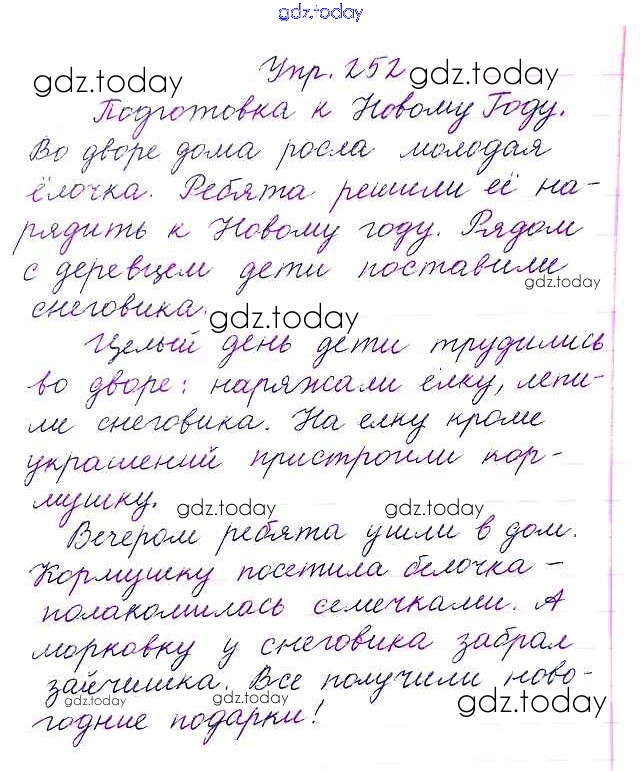 gdz.today
Упр. 252
gdz.today
gdz.today
Подготовка к Новому Году.
Во дворе дома росла молодая
ёлочка. Ребята решили её на-
рядить к Новому году. Рядом
с деревцем дети поставили
gdz.today
снеговика.
gdz.today
Целый день дети трудились
во дворе: наряжали елку, лепи-
ли снеговика. На елку кроме
украшений пристроили кор-
мушку.
gdz.today
gdz.today
Вечером ребята ушли в дом.
Кормушку посетила белочка –
полакомилась семечками. А
морковку у снеговика забрал
зайчишка. Все получили ново-
gdz.today
gdz.today
gdz.today
годние подарки!